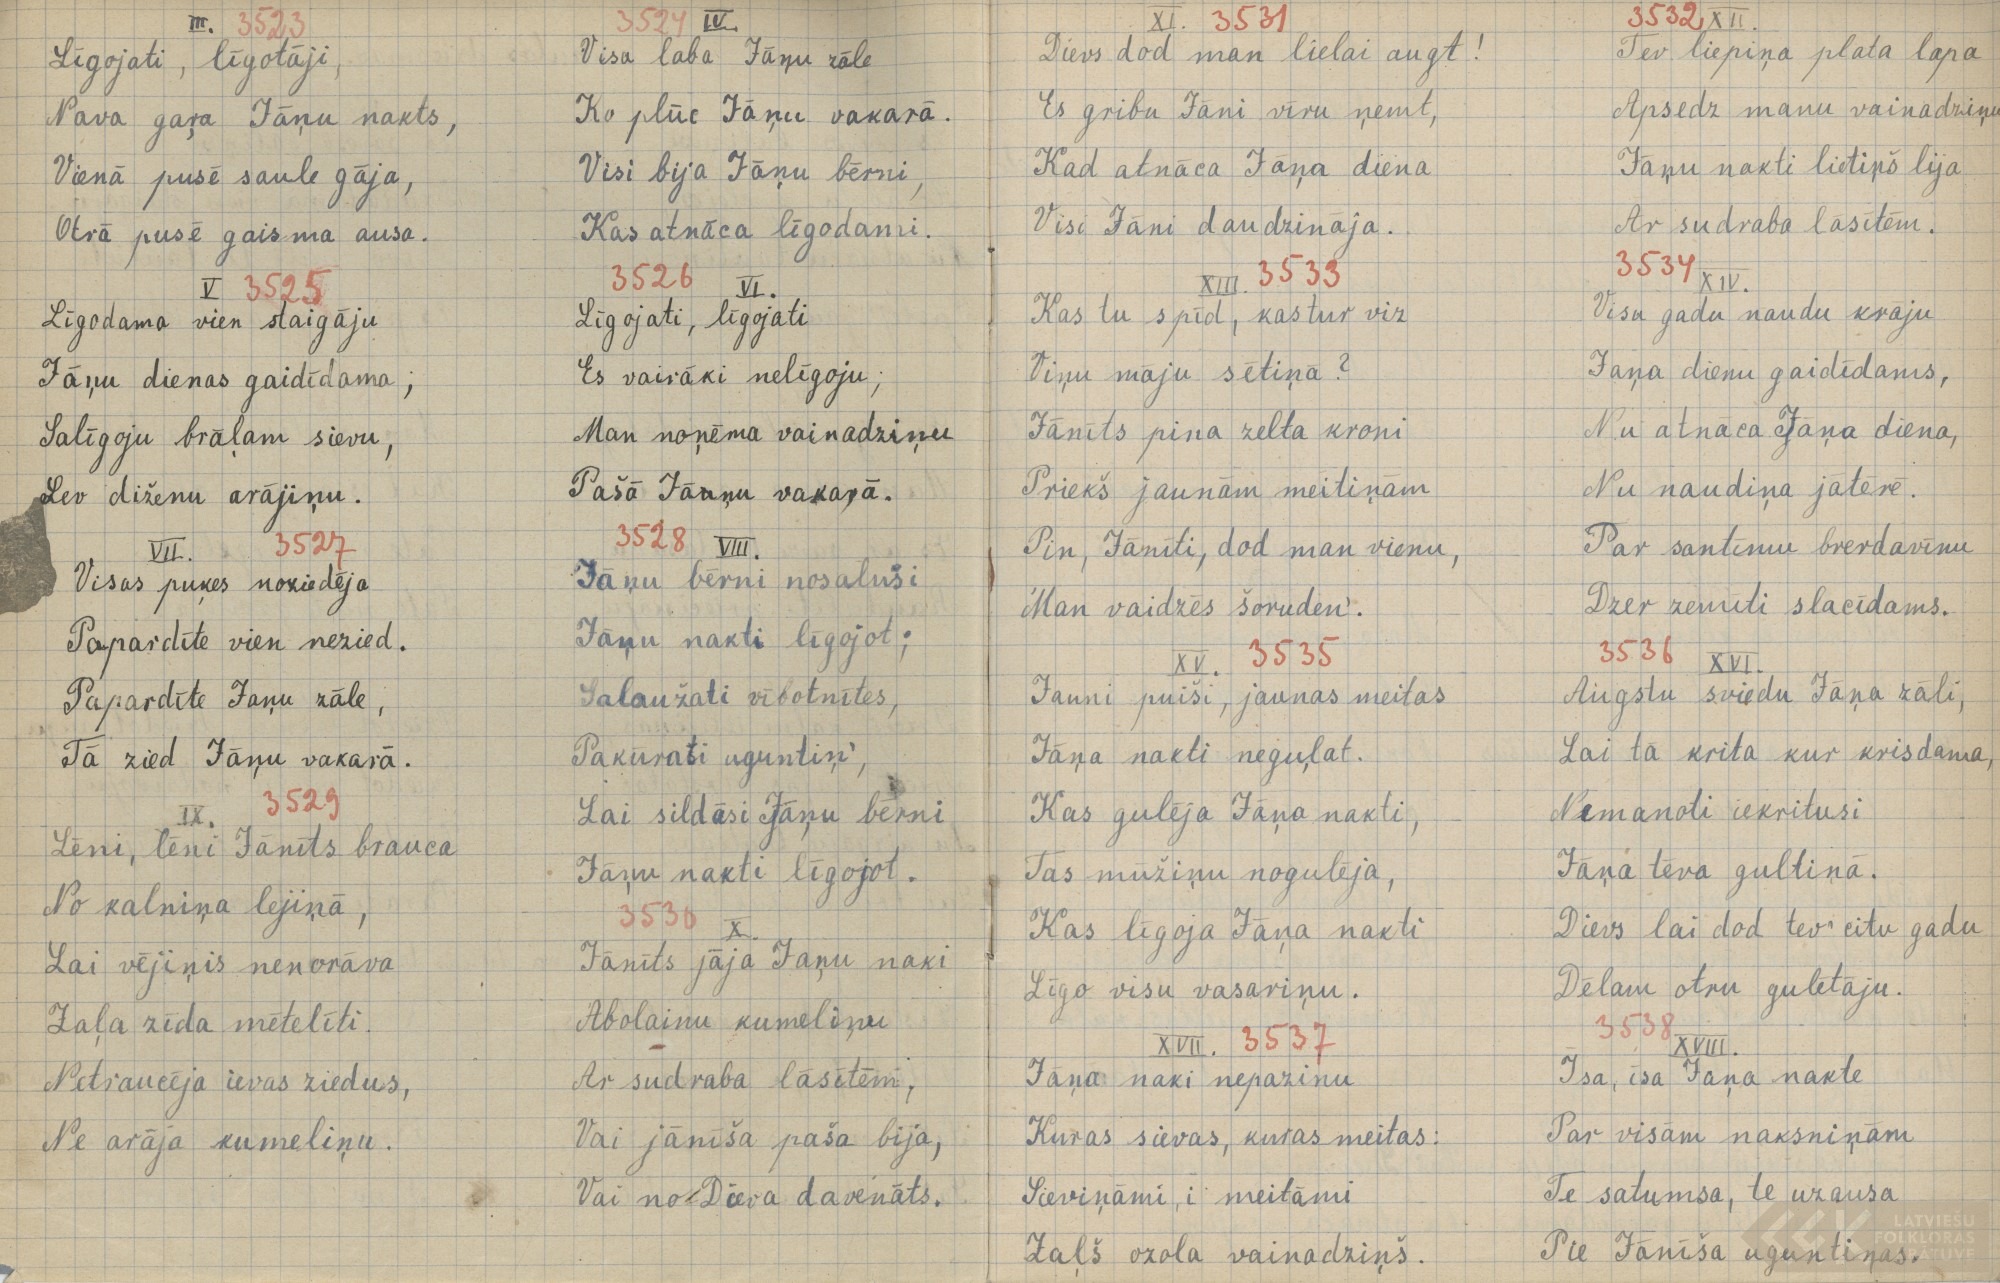 III. 3523
Līgojati, līgotāji,
Nava gaŗa Jāņu nakts,
Vienā pusē saule gāja,
Otrā pusē gaisma ausa.
3524 IV.
Visa laba Jāņu zāle
Ko plūc Jāņu vakarā.
Visi bija Jāņu bērni,
Kas atnāca līgodami.
V 3525
Līgodama vien staigāju
Jāņu dienas gaidīdama;
Salīgoju brāļam sievu,
Sev diženu arājiņu.
3526 VI.
Līgojati, līgojati
Es vairāki nelīgoju;
Man noņēma vainadziņu
Pašā Jāņu vakaŗā.
VII. 3527
Visas puķes noziedēja
Papardīte vien nezied.
Papardīte Jaņu zāle,
Tā zied Jāņu vakarā.
3528 VIII.
Jāņu bērni nosaluši
Jāņu nakti līgojot;
Salaužati vībotnītes,
Pakurati uguntiņ',
Lai sildāsi Jāņu bērni
Jāņu nakti līgojot.
IX. 3529
Lēni, lēni Jānīts brauca
No kalniņa lejiņā,
Lai vējiņis nenorāva
Zaļa zīda mētelīti.
Netraucēja ievas ziedus,
Ne arāja kumeliņu.
3530 X.
Jānīts jāja Jaņu naki
Abolainu kumeliņu
Ar sudraba lāsītēm,
Vai jānīša paša bija,
Vai no Dieva davenāts.
XI. 3531
Dievs dod man lielai augt!
Es gribu Jāni vīru ņemt,
Kad atnāca Jāņa diena
Visi Jāni daudzināja.
3532 XII.
Tev liepiņa plata lapa
Apsedz manu vainadziņu
Jāņu nakti lietiņš lija
Ar sudraba lāsītēm.
XIII. 3533
Kas tu spīd, kas tur viz
Viņu māju sētiņā?
Jānīts pina zelta kroni
Priekš jaunām meitiņām
Pin, Jānīti, dod man vienu,
Man vaidzēs šoruden'.
3534 XIV.
Visu gadu naudu krāju
Jaņa dienu gaidīdams,
Nu atnāca Jāņa diena,
Nu naudiņa jātērē.
Par santīmu brerdavīnu
Dzer zemīti slacīdams.
XV. 3535
Jauni puiši, jaunas meitas
Jāņa nakti neguļat.
Kas gulēja Jāņa nakti,
Tas mūžiņu nogulēja,
Kas līgoja Jāņa nakti
Līgo visu vasariņu.
3536 XVI.
Augstu sviedu Jāņa zāli,
Lai tā krita kur krisdama,
Nemanoti iekritusi
Jāņa tēva gultiņā.
Dievs lai dod tev citu gadu
Dēlam otru gulētāju.
XVII. 3537
Jāņa naki nepazinu
Kuras sievas, kuras meitas:
Sieviņāmi, i meitāmi
Zaļš ozola vainadziņš.
3538 XVIII.
Īsa, īsa Jaņa nakte
Par visām naksniņām
Te satumsa, te uzausa
Pie Jānīša uguntiņas.
LATVIEŠU
FOLKLORAS
KRĀTUVE